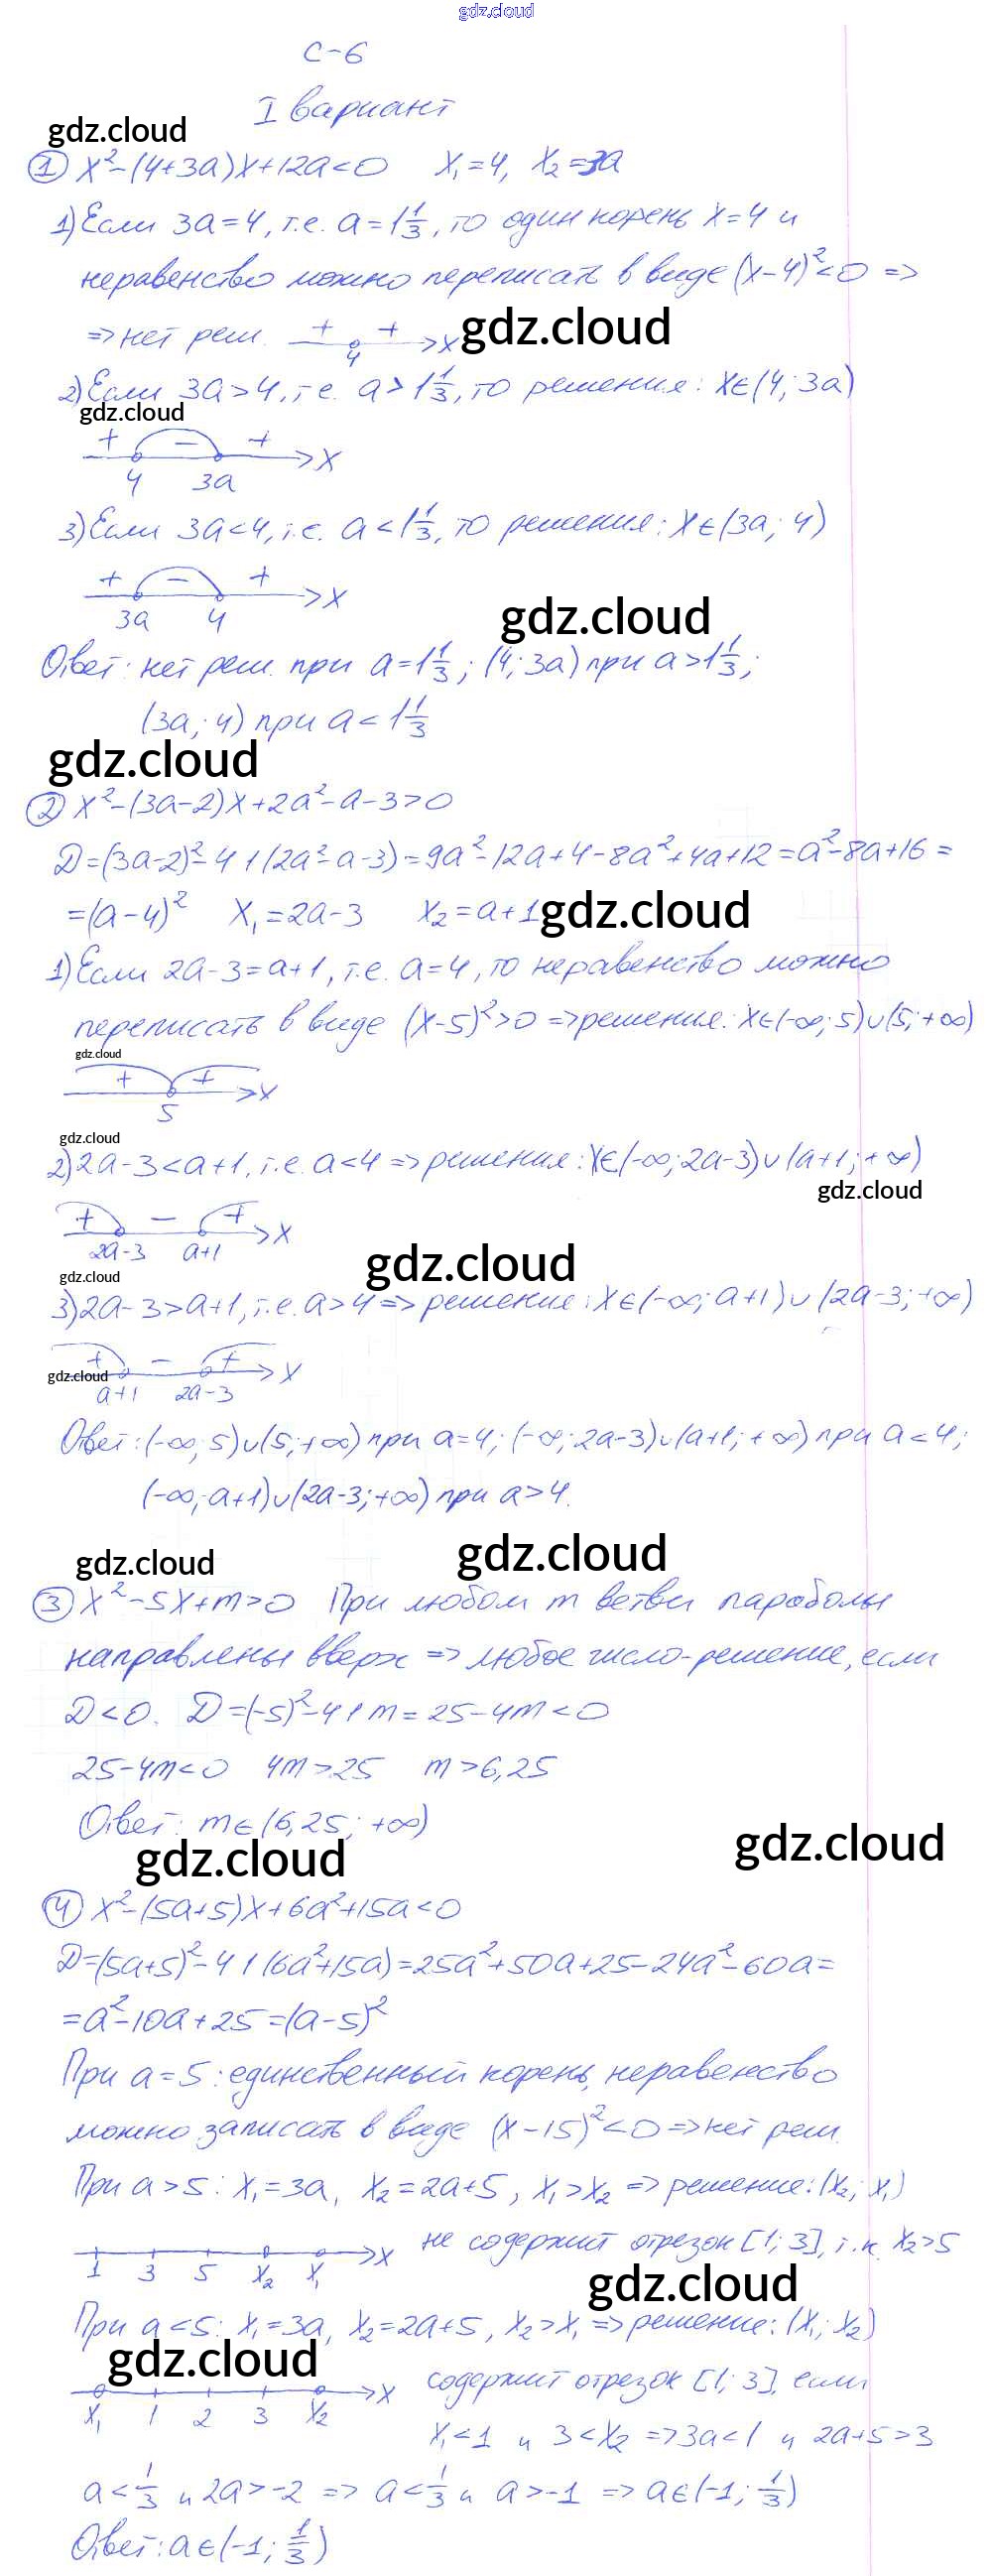 gdz.cloud
С-6
I вариант
gdz.cloud
① x²-(4+3a)x+12a<0 x₁=4, x₂=3a
1) Если 3a=4, т.е. a=1⅓, то один корень x=4 и
неравенство можно переписать в виде (x-4)²<0 =>
=> нет реш. + + x
4
gdz.cloud
2) Если 3a>4, т.е. a>1⅓, то решения: x∈(4; 3a)
gdz.cloud
+ - + x
4 3a
3) Если 3a<4, т.е. a<1⅓, то решения: x∈(3a; 4)
+ - + x
3a 4
gdz.cloud
Ответ: нет реш. при a=1⅓; (4; 3a) при a>1⅓;
(3a; 4) при a<1⅓
gdz.cloud
② x²-(3a-2)x+2a²-a-3>0
D=(3a-2)²-4·1(2a²-a-3)=9a²-12a+4-8a²+4a+12=a²-8a+16=
=(a-4)² x₁=2a-3 x₂=a+1
gdz.cloud
1) Если 2a-3=a+1, т.е. a=4, то неравенство можно
переписать в виде (x-5)²>0 => решения: x∈(-∞; 5)∪(5; +∞)
gdz.cloud
+ + x
5
gdz.cloud
2) 2a-3<a+1, т.е. a<4 => решения: x∈(-∞; 2a-3)∪(a+1; +∞)
gdz.cloud
+ - + x
2a-3 a+1
gdz.cloud
gdz.cloud
3) 2a-3>a+1, т.е. a>4 => решение: x∈(-∞; a+1)∪(2a-3; +∞)
+ - + x
gdz.cloud
a+1 2a-3
Ответ: (-∞; 5)∪(5; +∞) при a=4; (-∞; 2a-3)∪(a+1; +∞) при a<4;
(-∞; a+1)∪(2a-3; +∞) при a>4.
gdz.cloud
gdz.cloud
③ x²-5x+m>0 При любом m ветви параболы
направлены вверх => любое число-решение, если
D<0. D=(-5)²-4·1·m=25-4m<0
25-4m<0 4m>25 m>6,25
Ответ: m∈(6,25; +∞)
gdz.cloud
gdz.cloud
④ x²-(5a+5)x+6a²+15a<0
D=(5a+5)²-4·1(6a²+15a)=25a²+50a+25-24a²-60a=
=a²-10a+25=(a-5)²
При a=5: единственный корень, неравенство
можно записать в виде (x-15)²<0 => нет реш.
При a>5: x₁=3a, x₂=2a+5, x₁>x₂ => решение: (x₂; x₁)
не содержит отрезок [1; 3], т.к. x₂>5
x
1 3 5 x₂ x₁
gdz.cloud
При a<5: x₁=3a, x₂=2a+5, x₂>x₁ => решение: (x₁; x₂)
gdz.cloud
содержит отрезок [1; 3], если
x
x₁ 1 2 3 x₂
x₁<1 и 3<x₂ => 3a<1 и 2a+5>3
a<⅓ и 2a>-2 => a<⅓ и a>-1 => a∈(-1; ⅓)
Ответ: a∈(-1; ⅓)